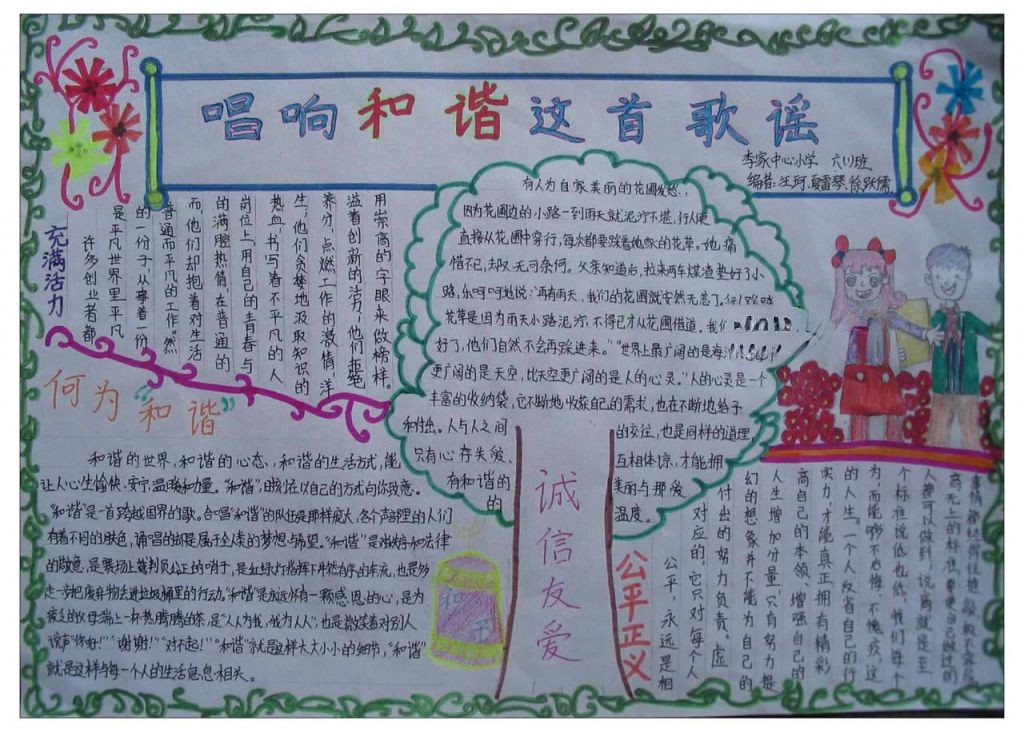 唱响和谐这首歌谣
李家中心小学 六(1)班
编者:汪珂.夏雷琴.徐跃儒
充满活力
许多创业者都
是平凡世界里平凡
的一份子,从事着一份
普通而平凡的工作。然
而,他们却抱着对生活
的满腔热情,在普通的
岗位上,用自己的青春与
热血,书写着不平凡的人
生;他们贪婪地汲取知识的
养分,点燃工作的激情,洋
溢着创新的活力;他们
用崇高的字眼来做榜样。
有人为自家美丽的花圃发愁。
因为花圃边的小路一到雨天就泥泞不堪,行人便
直接从花圃中穿行,每次都要踩着她家的花草。他痛
惜不已,却又无可奈何。父亲知道后,拉来两车煤渣垫好了小
路,乐呵呵地说:“再有雨天,我们的花圃就安然无恙了。
花草是因为雨天小路泥泞,不得已才从花圃借道。我们
好了,他们自然不会再踩进来。”“世界上最广阔的是海
更广阔的是天空,比天空更广阔的是人的心灵。”人的心灵是一个
丰富的收纳袋,它不断地收获自己的需求,也在不断地给予
和付出。人与人之间的交往,也是同样的道理,
只有心存关爱、互相体谅,才能拥
有和谐的美丽与那爱
的温度。
诚信友爱
何为“和谐”
和谐的世界,和谐的心态,和谐的生活方式,能
让人心生愉快、安宁、温暖和力量。“和谐”,时刻在以自己的方式向你致意。
“和谐”是一首跨越国界的歌。合唱“和谐”的队伍是那样庞大,各个声部里的人们
有着不同的肤色,诵唱的却是属于全人类的梦想与希望。“和谐”是对秩序和法律
的敬意,是赛场上裁判员公正的哨子,是红绿灯指挥下井然有序的车流,也是多
走一步把废弃物丢进垃圾桶里的行动。“和谐”是永远怀有一颗感恩的心,是为
疲乏的父母端上一杯热腾腾的茶,是“人人为我,我为人人”,也是微笑着对别人
说声“你好!”“谢谢!”“对不起!”“和谐”就是这样大大小小的细节,“和谐”
就是这样与每一个人的生活息息相关。
和
平
公平正义
公平,永远是相
对应的,它只对每个人
付出的努力负责。虚
幻的想象并不能为自己的
人生增加分量,只有努力提
高自己的本领、增强自己的
实力,才能真正拥有精彩
的人生。一个人反省自己的行
为,而能够不后悔、不愧疚,这
个标准说低也低,我们每个
人都可以做到,说高就是至
高无上的标准